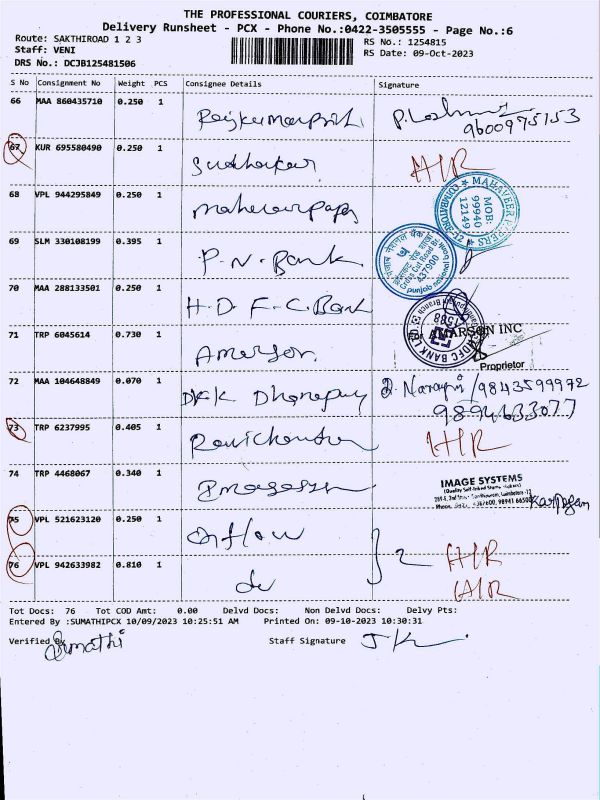 THE PROFESSIONAL COURIERS, COIMBATORE
Delivery Runsheet - PCX - Phone No.:0422-3505555 - Page No.:6
Route: SAKTHIROAD 1 2 3
RS No.: 1254815
Staff: VENI
RS Date: 09-Oct-2023
DRS No.: DCJB125481506
S No Consignment No Weight PCS Consignee Details Signature
66 MAA 860435710 0.250 1
9600975153
67 KUR 695580490 0.250 1
Sudhakar
68 VPL 944295849 0.250 1
MAHAVEER PAPERS
COIMBATORE-12
MOB:
99940
12149
69 SLM 330108199 0.395 1
P.N. Bank
Cross Cut Road
437900
punjab national bank
70 MAA 288133501 0.250 1
H.D.F.C. Bank
HDFC BANK LTD
71 TRP 6045614 0.730 1
Amarson
AMARSON INC
Proprietor
72 MAA 104648849 0.070 1
9843599972
9894633077
73 TRP 6237995 0.405 1
74 TRP 4468067 0.340 1
IMAGE SYSTEMS
75 VPL 521623120 0.250 1
76 VPL 942633982 0.810 1
do
2
Tot Docs: 76 Tot COD Amt: 0.00 Delvd Docs: Non Delvd Docs: Delvy Pts:
Entered By :SUMATHIPCX 10/09/2023 10:25:51 AM Printed On: 09-10-2023 10:30:31
Verified By Sumathi Staff Signature